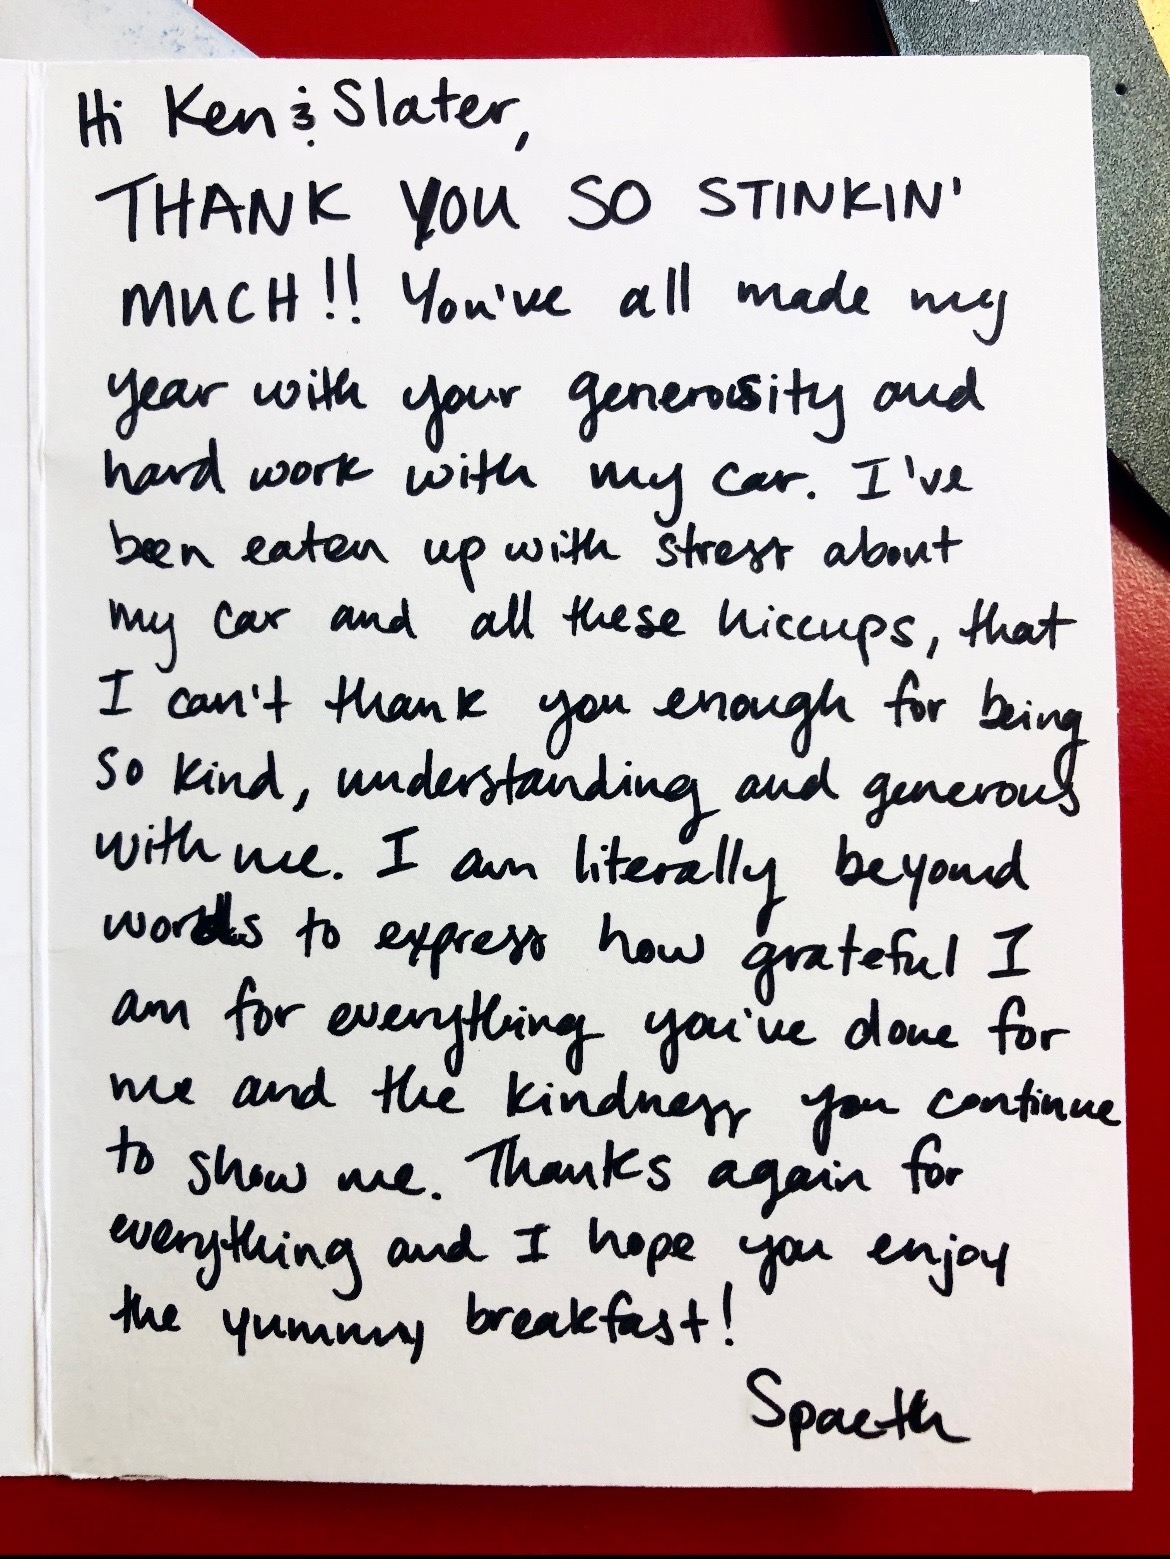 Hi Ken & Slater,
THANK YOU SO STINKIN'
MUCH!! You've all made my
year with your generosity and
hard work with my car. I've
been eaten up with stress about
my car and all these hiccups, that
I can't thank you enough for being
so kind, understanding and generous
with me. I am literally beyond
words to express how grateful I
am for everything you've done for
me and the kindness you continue
to show me. Thanks again for
everything and I hope you enjoy
the yummy breakfast!
Spaeth